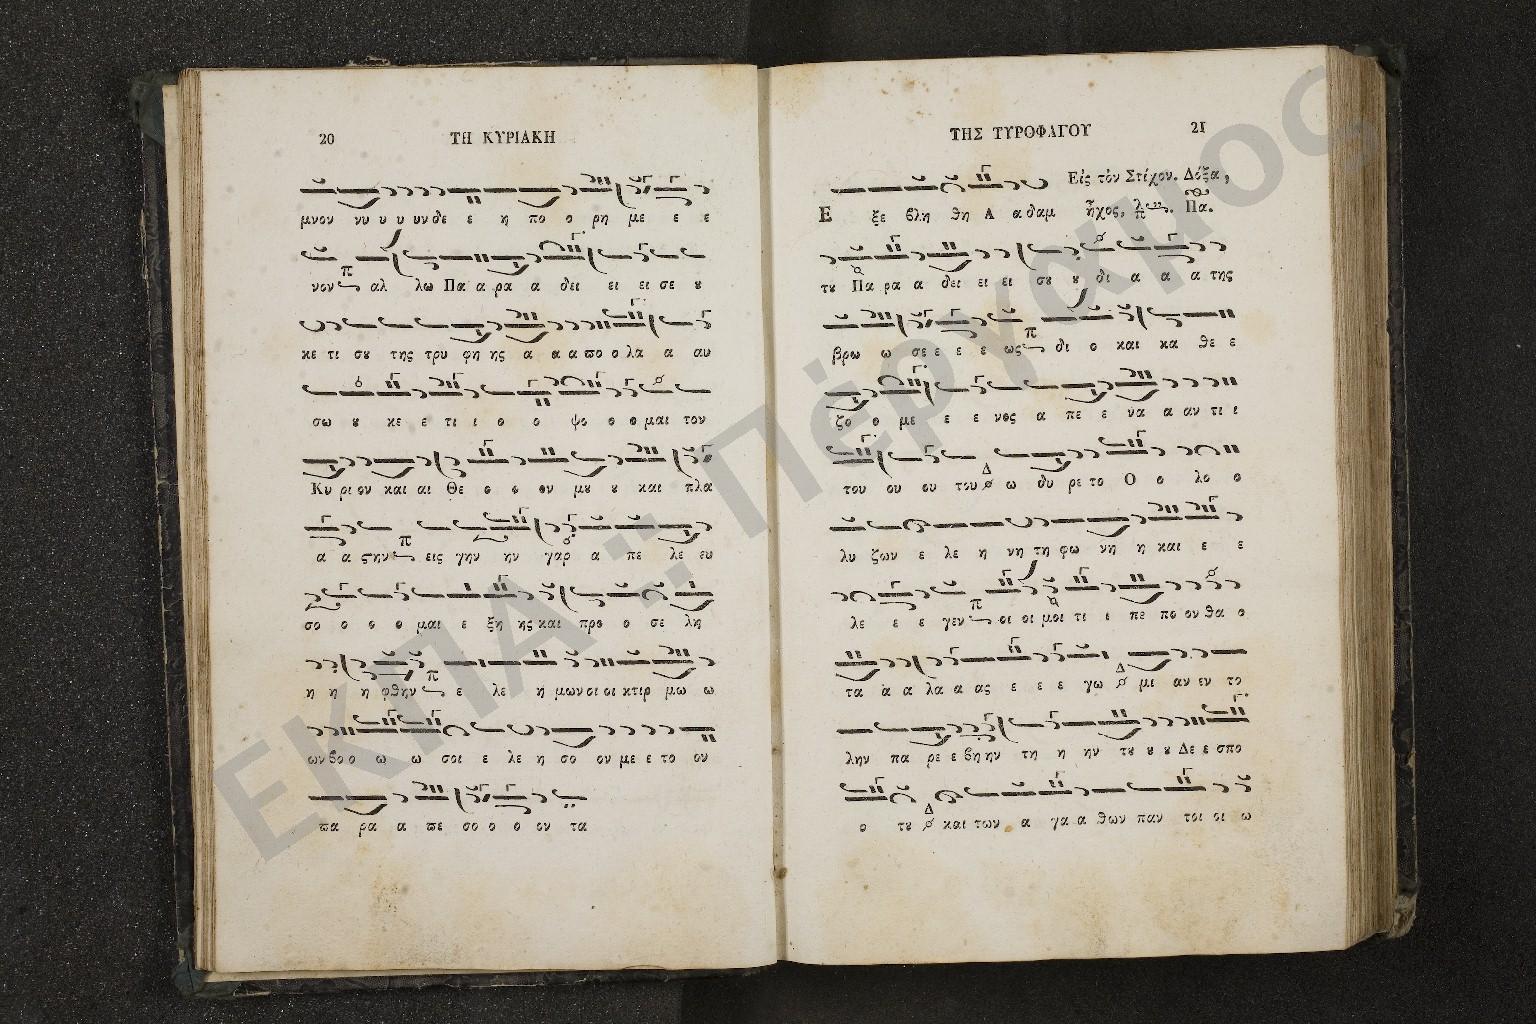 20 ΤΗ ΚΥΡΙΑΚΗ
μνον νυ υ υ υν δε ε η πο ο ρη με ε ε
νον αλ λω Πα α ρα α δει ει ει σε υ
κε τι συ της τρυ φη ης α α α πο ο λα α αυ
σω υ κε ε τι ι ο ο ψο ο ο μαι τον
Κυ ρι ον και αι Θε ο ο ον μυ υ και πλα
α α ςην εις γην ην γαρ α πε λε ευ
σο ο ο ο μαι ε ξη ης και προ ο σε λη
η η η φθην ε λε η μων οι οι κτιρ μω ω
ων βο ο ω ω σοι ε λε η σο ον με ε το ον
πα ρα α πε σο ο ο ον τα
ΤΗΣ ΤΥΡΟΦΑΓΟΥ 21
Εἰς τὸν Στίχον. Δόξα,
Ε ξε βλη θη Α α δαμ ἦχος, Πα.
τυ Πα ρα α δει ει ει συ υ δι α α α της
βρω ω σε ε ε ε ως π δι ο και κα θε ε
ζο ο με ε ε νος α πε ε να α αν τι ι
του ου ου του Δ ω δυ ρε το Ο ο λο ο
λυ ζων ε λε η νη τη φω νη η και ε ε
λε ε ε γεν π οι οι μοι τι ι πε πο ον θα ο
τα α α λα α ας ε ε ε γω Δ μι αν εν το
λην πα ρε ε βη ην τη η ην τυ υ υ Δε ε σπο
ο τυ Δ και των α γα α θων παν τοι οι ω
ΕΚΠΑ :: Πέργαμος